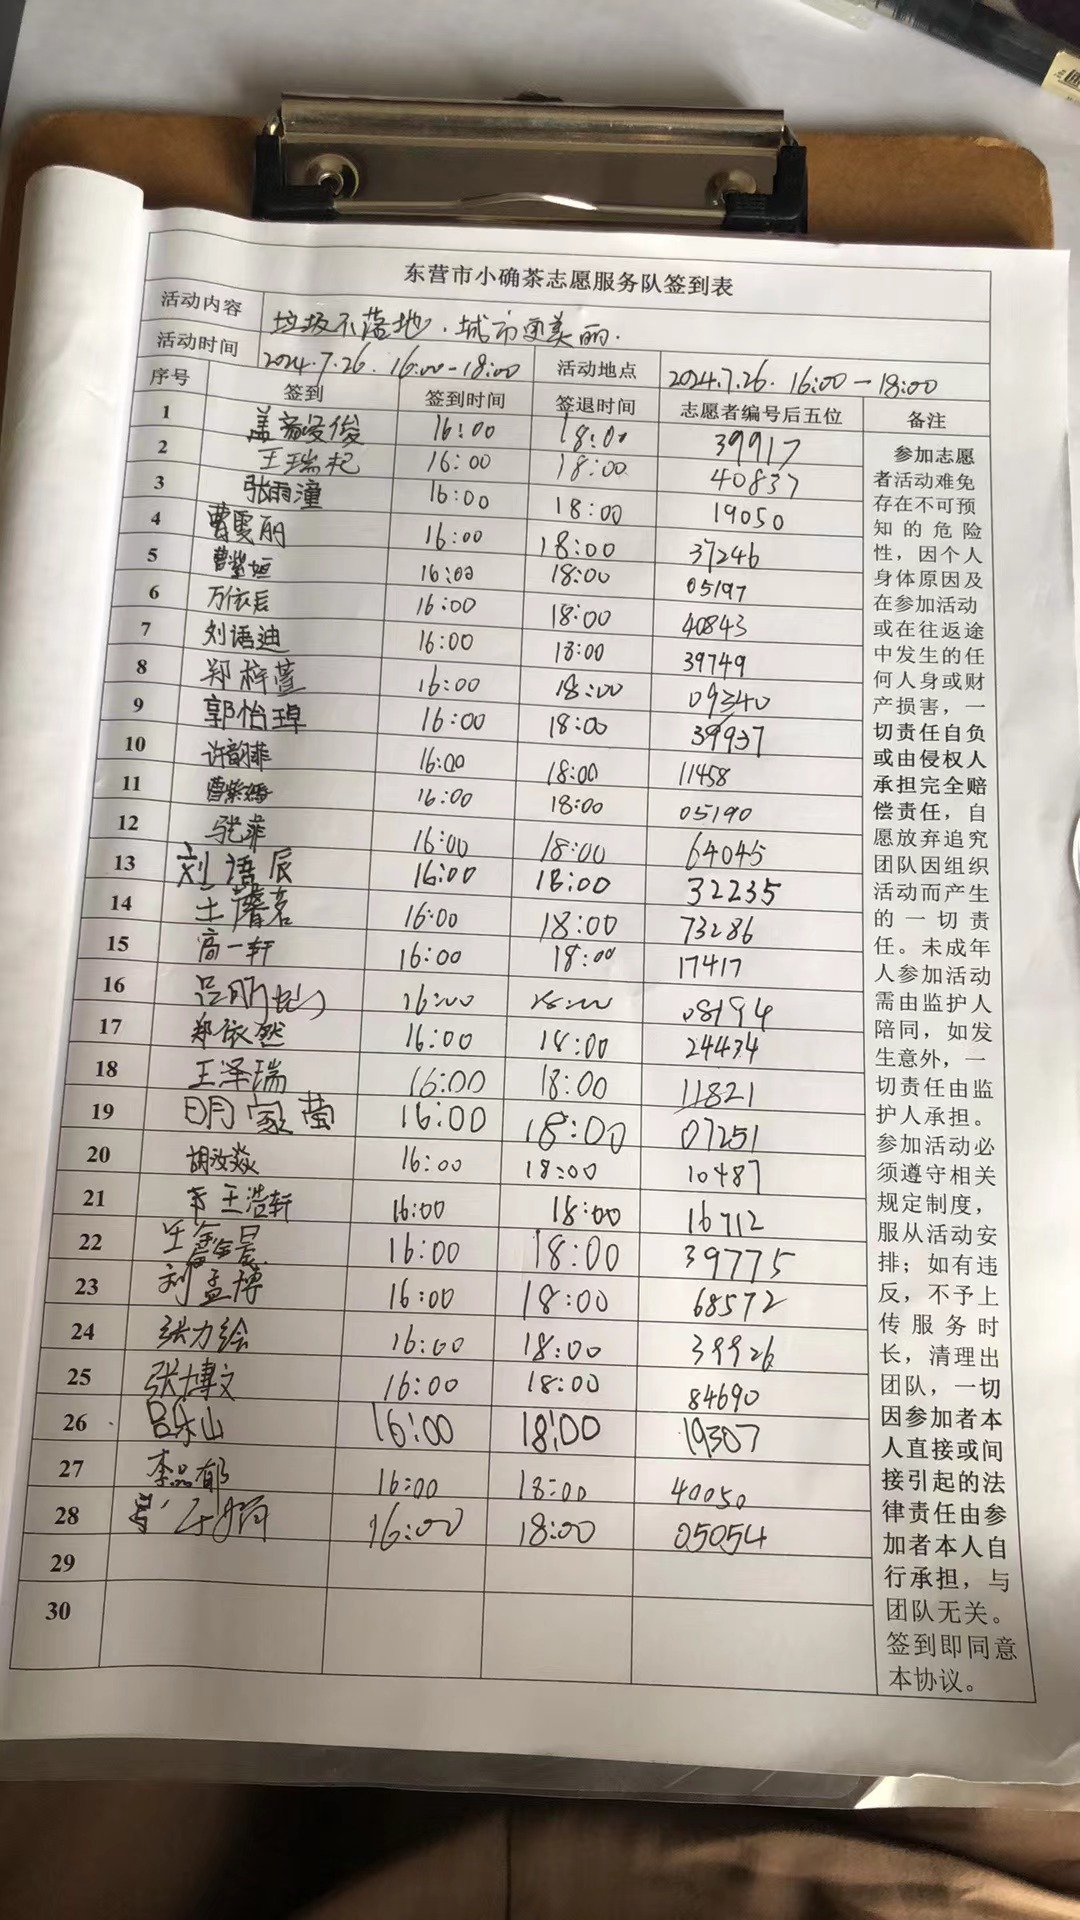 东营市小确茶志愿服务队签到表
活动内容 垃圾不落地.城市更美丽.
活动时间 2024.7.26. 16:00-18:00 活动地点 2024.7.26. 16:00-18:00
序号 签到 签到时间 签退时间 志愿者编号后五位 备注
1 16:00 18:00 39917
2 王瑞杞 16:00 18:00 40837
3 张雨潼 16:00 18:00 19050
4 曹雯丽 16:00 18:00 37246
5 曹紫姮 16:00 18:00 05197
6 万依辰 16:00 18:00 40843
7 刘语迪 16:00 18:00 39749
8 郑梓萱 16:00 18:00 09340
9 郭怡琸 16:00 18:00 39937
10 许韵菲 16:00 18:00 11458
11 曹紫嫣 16:00 18:00 05190
12 张菲 16:00 18:00 64045
13 刘语辰 16:00 18:00 32235
14 16:00 18:00 73286
15 高一轩 16:00 18:00 17417
16 16:00 18:00 08194
17 郑依然 16:00 18:00 24434
18 王泽瑞 16:00 18:00 11821
19 明家萤 16:00 18:00 07251
20 胡汝焱 16:00 18:00 10487
21 王浩轩 16:00 18:00 16712
22 16:00 18:00 39775
23 刘孟博 16:00 18:00 68572
24 张力绘 16:00 18:00 39926
25 张博文 16:00 18:00 84690
26 吕乐山 16:00 18:00 19307
27 李品郁 16:00 18:00 40050
28 16:00 18:00 05054
29
30
参加志愿
者活动难免
存在不可预
知的危险
性，因个人
身体原因及
在参加活动
或在往返途
中发生的任
何人身或财
产损害，一
切责任自负
或由侵权人
承担完全赔
偿责任，自
愿放弃追究
团队因组织
活动而产生
的一切责
任。未成年
人参加活动
需由监护人
陪同，如发
生意外，一
切责任由监
护人承担。
参加活动必
须遵守相关
规定制度，
服从活动安
排；如有违
反，不予上
传服务时
长，清理出
团队，一切
因参加者本
人直接或间
接引起的法
律责任由参
加者本人自
行承担，与
团队无关。
签到即同意
本协议。